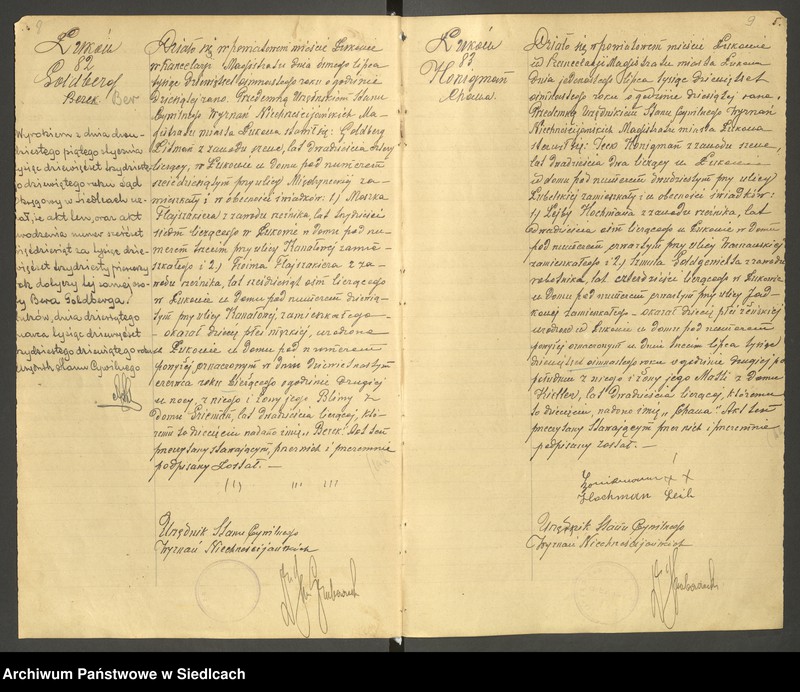 Łuków
82
Goldberg
Berek Ber
Wyrokiem z dnia dwu-
dziestego piątego stycznia
tysiąc dziewięćset trzydziestego
dziewiątego roku Sąd
Okręgowy w Siedlcach
że akt ten, oraz akt
urodzenia numer sześćset
pięćdziesiąt za tysiąc dzie-
więćset trzydziesty pierwszy
rok dotyczy tej samej oso-
by Bera Goldberga.
Łuków, dnia dziewiątego
marca tysiąc dziewięćset
trzydziestego dziewiątego roku
Urzędnik Stanu Cywilnego
Działo się w powiatowem mieście Łukowie
w Kancelarji Magistratu dnia drugiego lipca
tysiąc dziewięćset osiemnastego roku o godzinie
dziesiątej rano. Przedemną Urzędnikiem Stanu
Cywilnego Wyznań Niechrześcijańskich Ma-
gistratu miasta Łukowa stawił się: Goldberg
z zawodu szewc, lat dwadzieścia cztery
liczący, w Łukowie w domu pod numerem
sześćdziesiątym przy ulicy Międzyrzeckiej za-
mieszkały i w obecności świadków: 1) Moszka
Flajszakiera z zawodu rzeźnika, lat trzydzieści
siedm liczącego w Łukowie w domu pod nu-
merem trzecim przy ulicy Kanałowej zamie-
szkałego i 2) Froima Flajszakiera z za-
wodu rzeźnika, lat sześćdziesiąt ośm liczącego
w Łukowie w domu pod numerem dziewią-
tym przy ulicy Kanałowej, zamieszkałego —
- okazał dziecię płci męzkiej, urodzone
w Łukowie w domu pod numerem
powyżej oznaczonym w dniu dziewiętnastym
czerwca roku bieżącego o godzinie drugiej
w nocy, z niego i żony jego Blimy z
domu lat dwadzieścia liczącej, któ-
remu to dziecięciu nadano imię „Berek". Akt ten
przeczytany stawającym, przez nich i przezemnie
podpisany został. —
Urzędnik Stanu Cywilnego
Wyznań Niechrześcijańskich
9 5.
Łuków
83.
Honigman
Chawa.
Działo się w powiatowem mieście Łukowie
w Kancelarji Magistratu miasta Łukowa
dnia jedenastego lipca tysiąc dziewięćset
ośmnastego roku o godzinie dziesiątej rano.
Przedemną Urzędnikiem Stanu Cywilnego Wyznań
Niechrześcijańskich Magistratu miasta Łukowa
stawił się: Icek Honigman z zawodu szewc,
lat dwadzieścia dwa liczący w Łukowie
w domu pod numerem dwudziestym przy ulicy
Lubelskiej zamieszkały i w obecności świadków:
1) Lejby Hochmana z zawodu rzeźnika, lat
dwadzieścia ośm liczącego w Łukowie w domu
pod numerem czwartym przy ulicy
zamieszkałego i 2) Szmula z zawodu
robotnika, lat czterdzieści liczącego w Łukowie
w domu pod numerem czwartym przy ulicy Zad-
kowej zamieszkałego — okazał dziecię płci żeńskiej
urodzone w Łukowie w domu pod numerem
powyżej oznaczonym w dniu trzecim lipca tysiąc
dziewięćset ośmnastego roku o godzinie drugiej po
południu z niego i żony jego Matli z domu
lat dwadzieścia liczącej, któremu
to dziecięciu, nadano imię „Chawa". Akt ten
przeczytany stawającym przez nich i przezemnie
podpisany został. —
Hochman Leib
Urzędnik Stanu Cywilnego
Wyznań Niechrześcijańskich
Archiwum Państwowe w Siedlcach